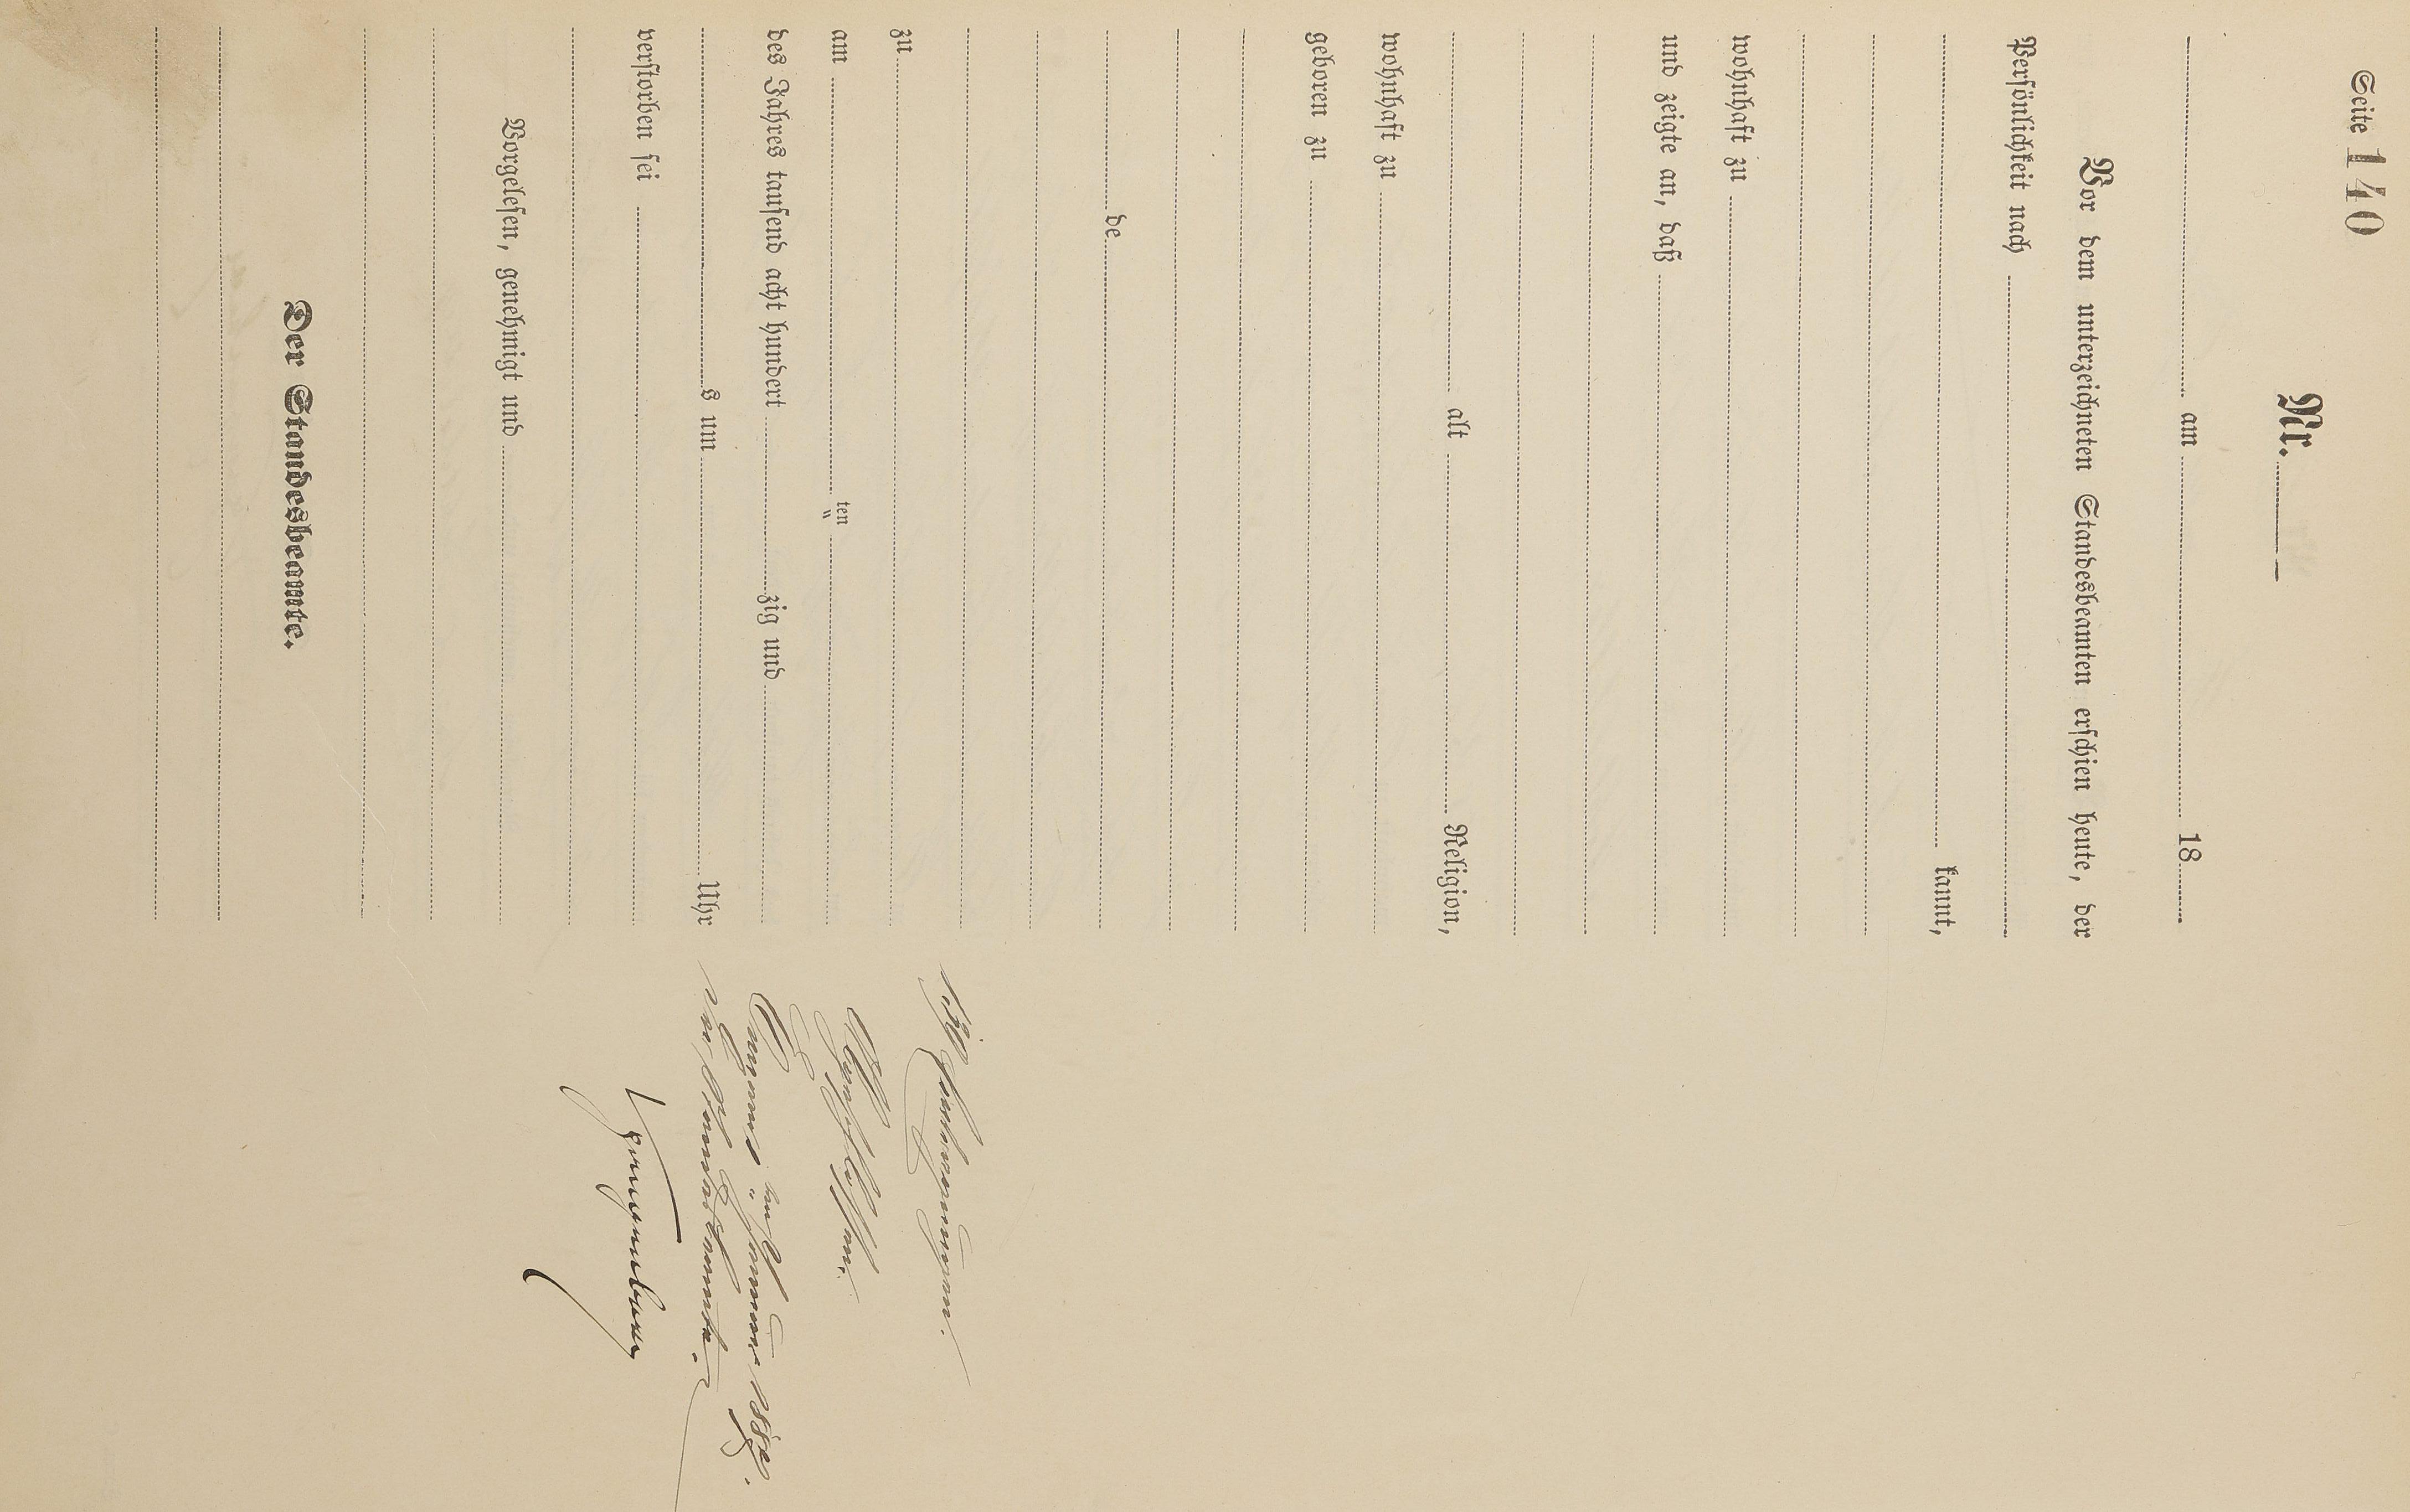 Seite 140
Nr.
am 18
Vor dem unterzeichneten Standesbeamten erschien heute, der
Persönlichkeit nach
kannt,
wohnhaft zu
und zeigte an, daß
alt Religion,
wohnhaft zu
geboren zu
de
zu
am ten
des Jahres tausend acht hundert zig und
s um Uhr
verstorben sei
Vorgelesen, genehmigt und
Der Standesbeamte.
Januar
Der Standesbeamte.